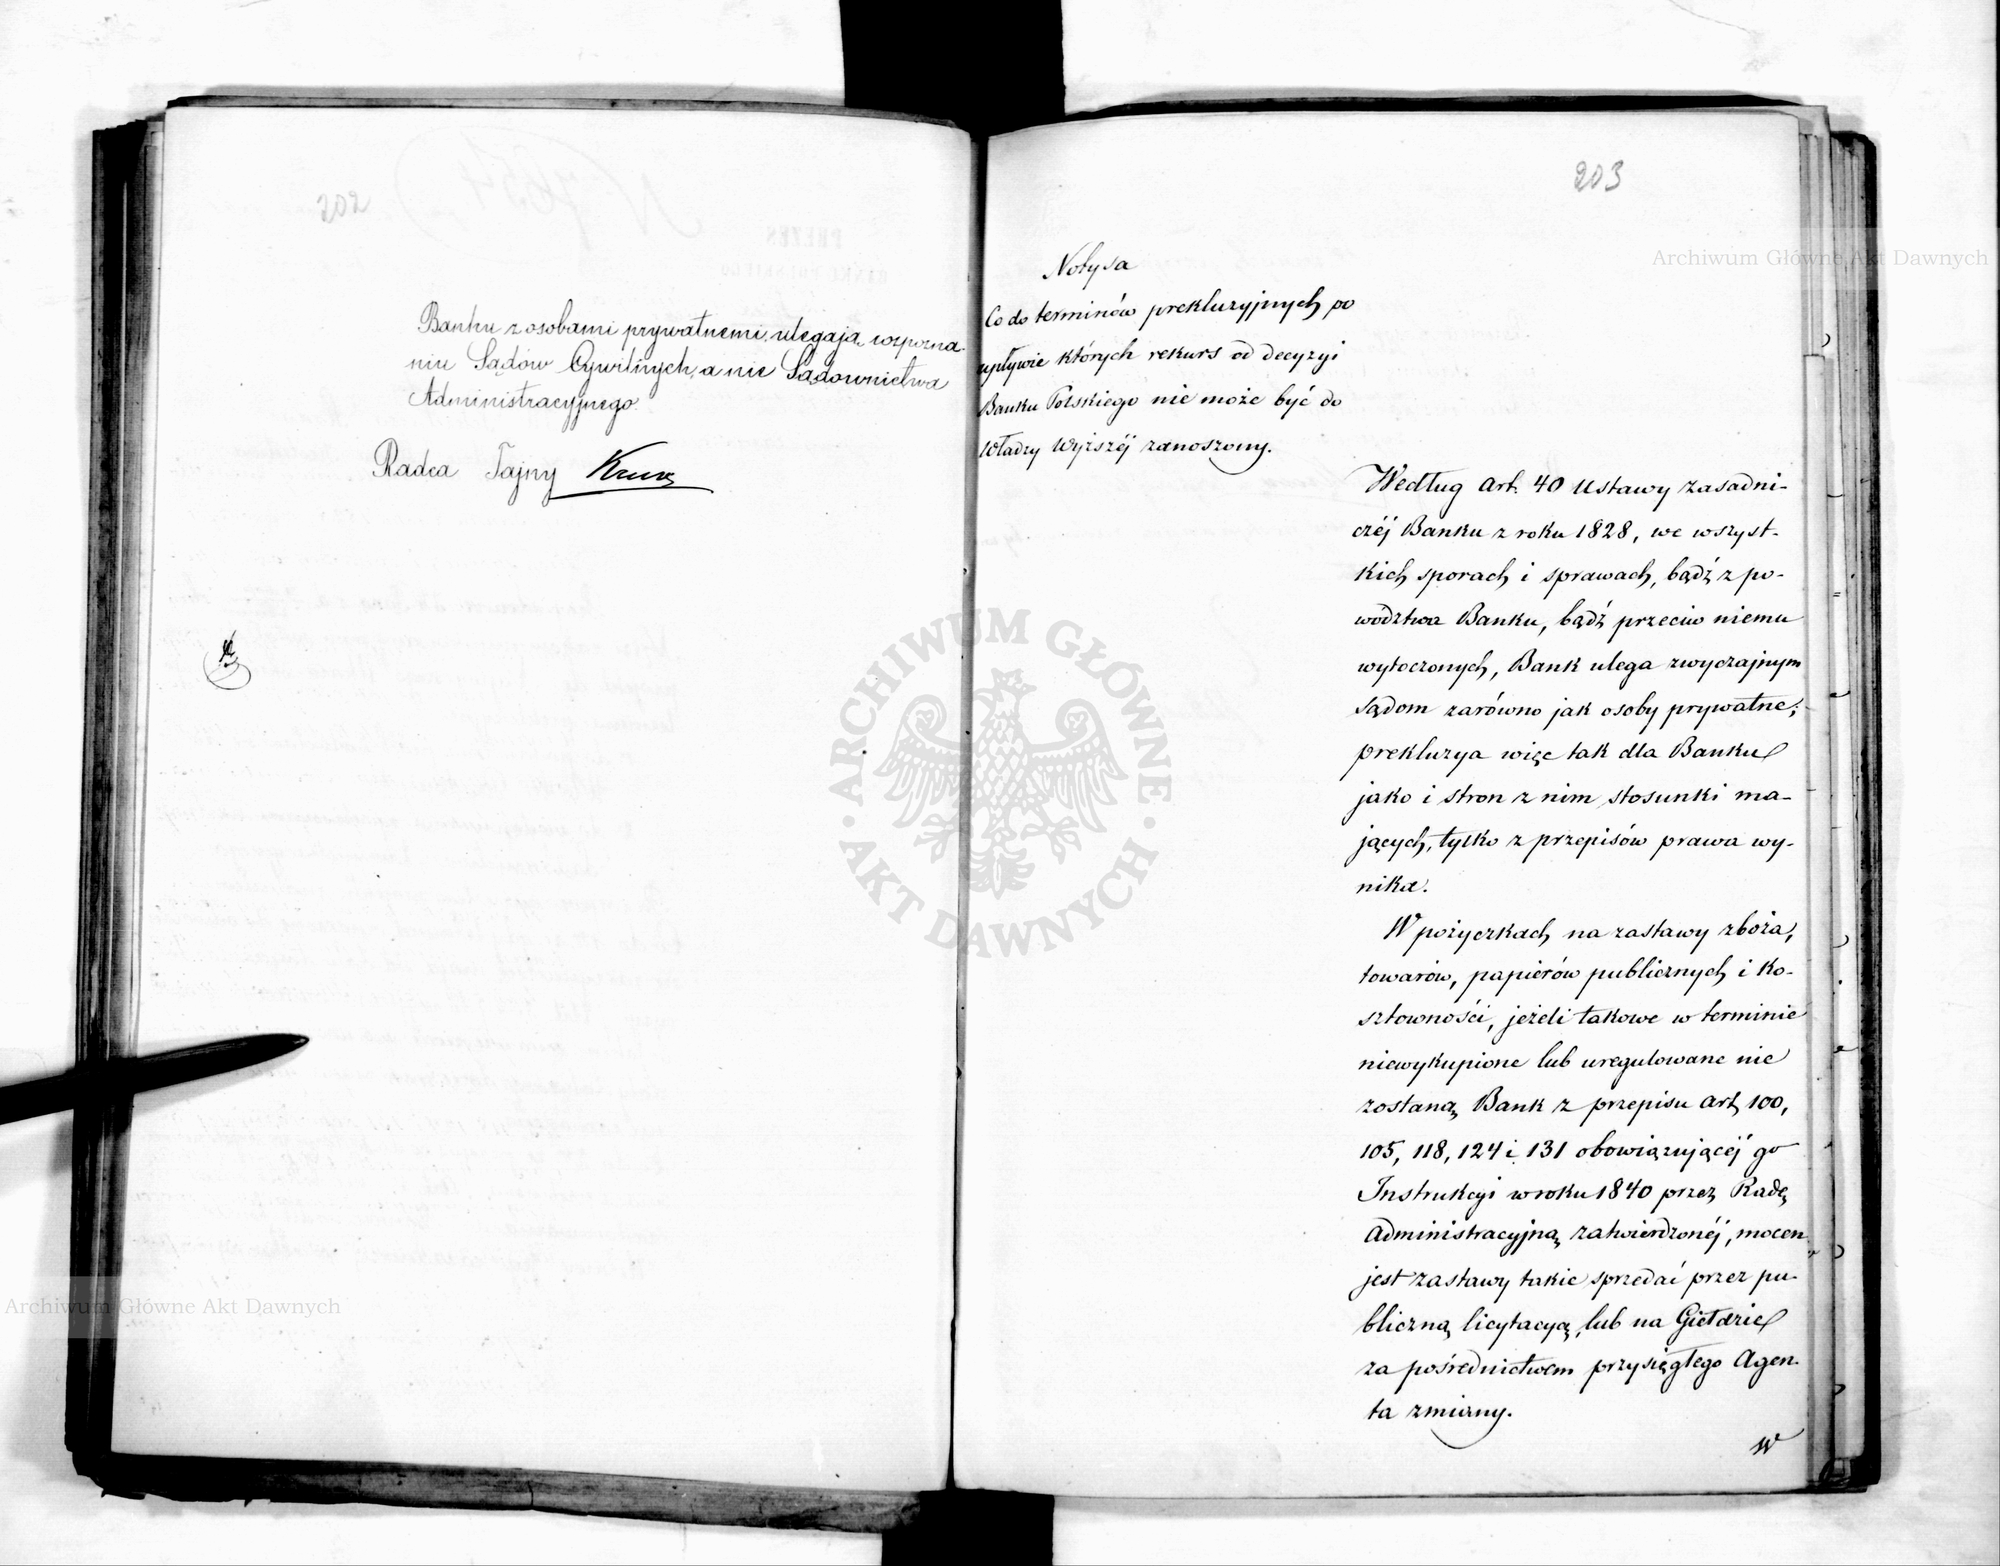 202
Banku z osobami prywatnemi, ulegają rozpozna-
niu Sądów Cywilnych, a nie Sądownictwa
Administracyjnego.
Radca Tajny
203
Notysa
Co do terminów prekluzyjnych po
upływie których rekurs od decyzyi
Banku Polskiego nie może być do
Władzy Wyższéj zanoszony.
Według art. 40 Ustawy zasadni-
czéj Banku z roku 1828, we wszyst-
kich sporach i sprawach, bądź z po-
wództwa Banku, bądź przeciw niemu
wytoczonych, Bank ulega zwyczajnym
sądom zarówno jak osoby prywatne;
prekluzya więc tak dla Banku
jako i stron z nim stosunki ma-
jących, tylko z przepisów prawa wy-
nika.
W pożyczkach na zastawy zboża,
towarów, papierów publicznych i ko-
sztowności, jeżeli takowe w terminie
niewykupione lub uregulowane nie
zostaną, Bank z przepisu art. 100,
105, 118, 124 i 131 obowiązującéj go
Instrukcyi w roku 1840 przez Radę
Administracyjną zatwierdzonéj, mocen
jest zastawy takie sprzedać przez pu-
bliczną licytacyą, lub na Giełdzie
za pośrednictwem przysięgłego Agen-
ta zmiany.
W
ARCHIWUM GŁÓWNE
AKT DAWNYCH
Archiwum Główne Akt Dawnych
Archiwum Główne Akt Dawnych